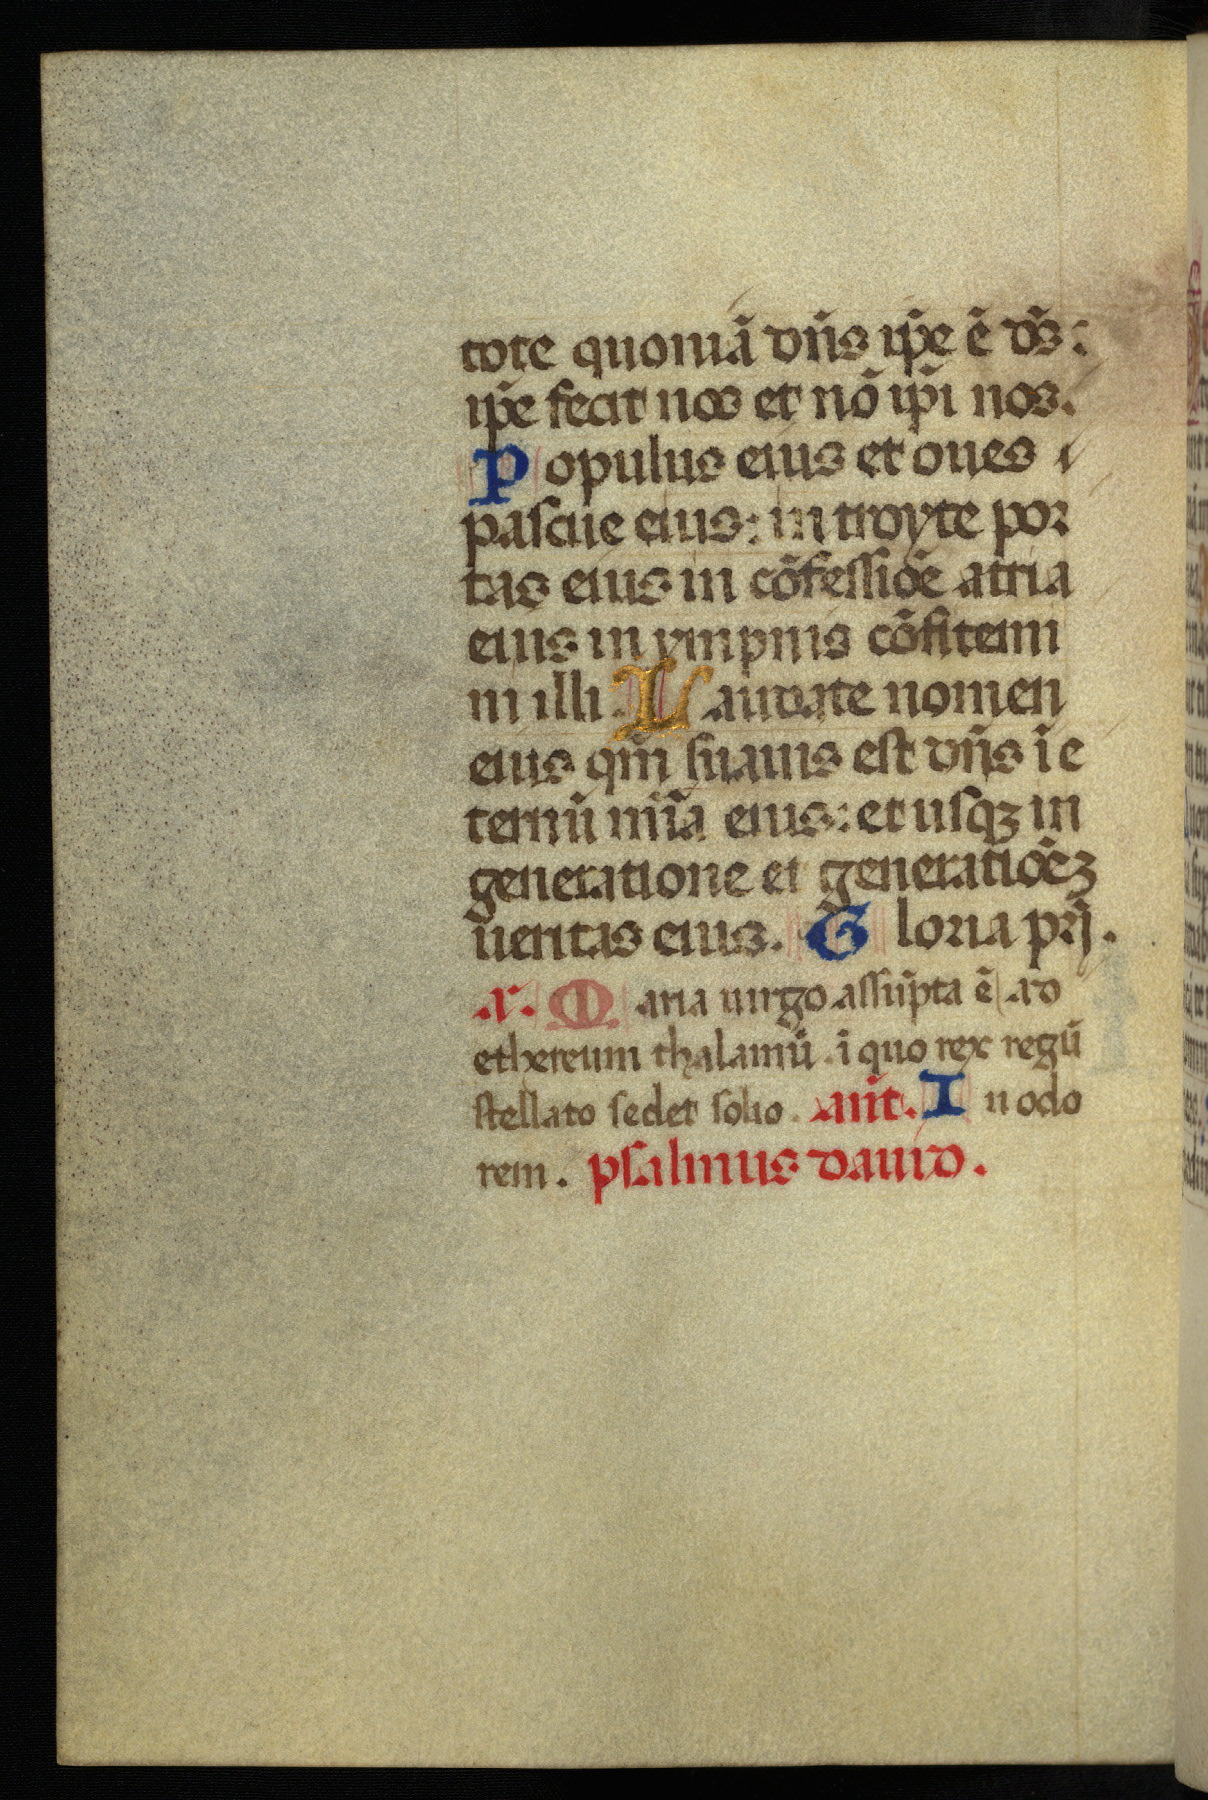 tote quoniã dñs ip̃e ẽ ds̃:
ip̃e fecit nos et nõ ip̃i nos.
Populus eius et oues
pascue eius: in troyte por
tas eius in cõfessiõe atria
eius in ympnis cõfitemi
ni illi. Laudate nomen
eius qm̃ suauis est dñs ĩ e
ternũ mĩa eius: et usqꝫ in
generatione et generatiõeꝫ
ueritas eius. Gloria pr̃j.
a. Maria uirgo assũpta ẽ ad
ethereum thalamũ. ĩ quo rex regũ
stellato sedet solio. añt. In odo
rem. psalmus dauid.